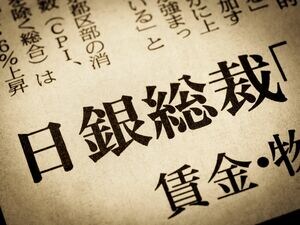 日銀総裁「
賃金・物
加す
に上
強まっ
いる」と
都区部の消
数(CPI、
除く総合)は
6%上昇